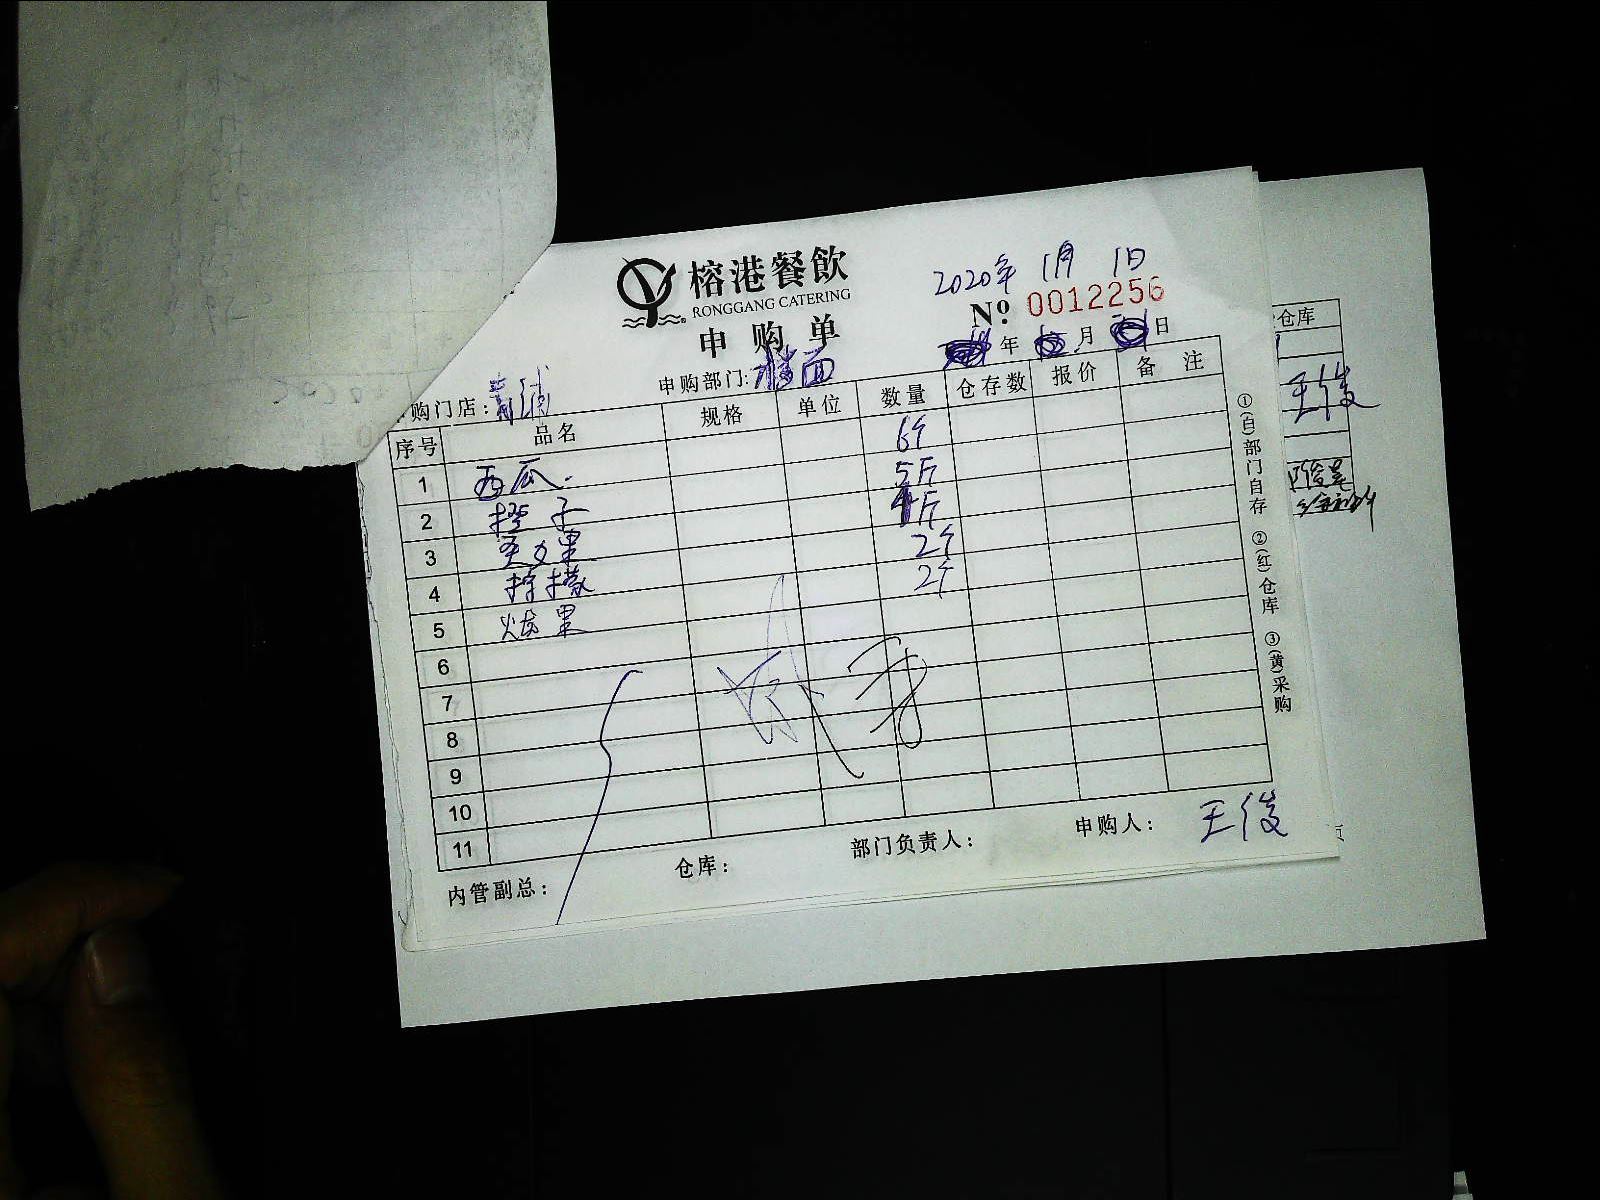 榕港餐飲
RONGGANG CATERING
申购单
2020年 1月 1日
No. 0012256
年 月 日
购门店: 青浦 申购部门: 楼面
序号 品名 规格 单位 数量 仓存数 报价 备注
1 西瓜 6个
2 橙子 5斤
3 火果 斤
4 柠檬 2个
5 果 2个
6
7
8
9
10
11
内管副总: 仓库: 部门负责人: 申购人: 王俊
①(白)部门自存 ②(红)仓库 ③(黄)采购
仓库
王俊